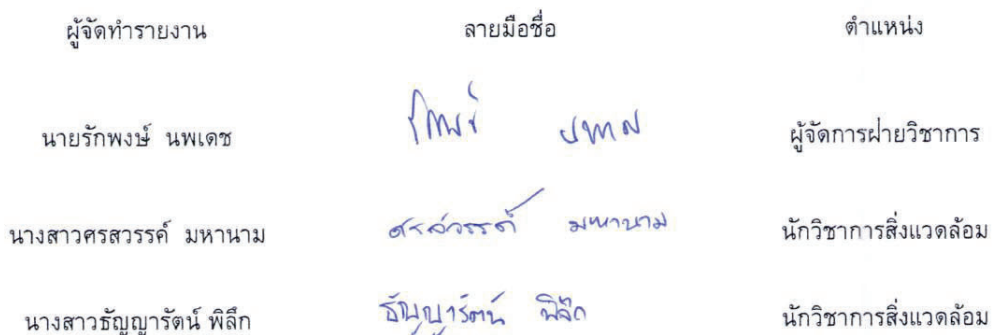 ผู้จัดทำรายงาน ลายมือชื่อ ตำแหน่ง
นายรักพงษ์ นพเดช ผู้จัดการฝ่ายวิชาการ
นางสาวศรสวรรค์ มหานาม ศรสวรรค์ มหานาม นักวิชาการสิ่งแวดล้อม
นางสาวธัญญารัตน์ พิลึก ธัญญารัตน์ พิลึก นักวิชาการสิ่งแวดล้อม